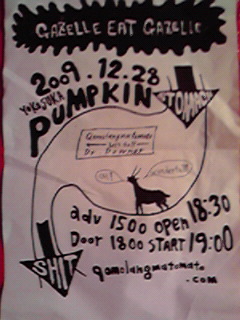 GAZELLE EAT GAZELLE
2009.12.28
YOKOSUKA
PUMPKIN
STOMACH
Qomolangmatomato
Dr Downer
adv 1500 open 18:30
Door 1800 START 19:00
SHIT
qomolangmatomato
.com